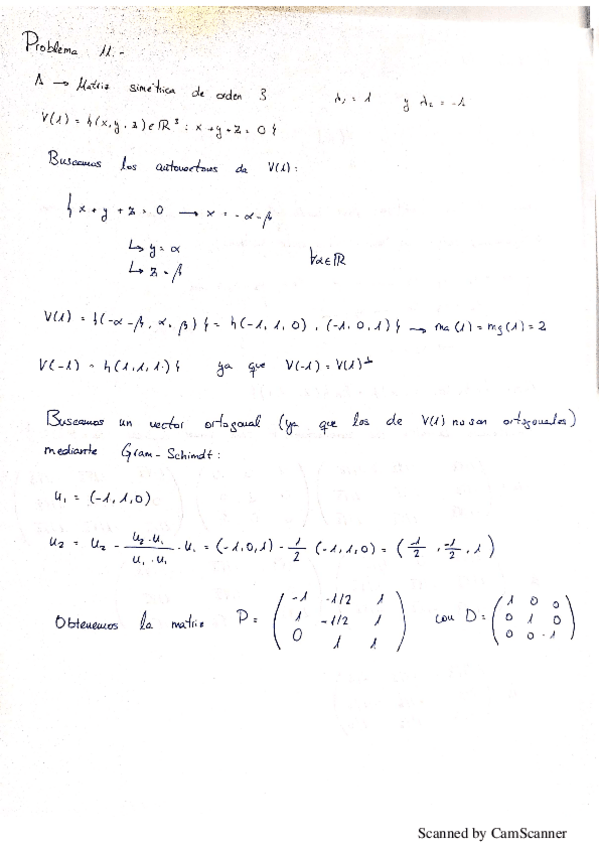 Problema 11.-
A → Matriz simétrica de orden 3    λ₁ = 1 y λ₂ = -1
V(1) = {(x, y, z) ∈ ℝ³ : x + y + z = 0}
Buscamos los autovectores de V(1):
{x + y + z = 0 → x = -α - β
↳ y = α    ∀α∈ℝ
↳ z = β
V(1) = {(-α - β, α, β)} = {(-1, 1, 0), (-1, 0, 1)} → ma(1) = mg(1) = 2
V(-1) = {(1, 1, 1)} ya que V(-1) = V(1)^⊥
Buscamos un vector ortogonal (ya que los de V(1) no son ortogonales)
mediante Gram-Schimdt:
u₁ = (-1, 1, 0)
u₂ = u₂ - (u₂ · u₁)/(u₁ · u₁) · u₁ = (-1, 0, 1) - 1/2 (-1, 1, 0) = (-1/2, -1/2, 1)
Obtenemos la matriz P = (-1 -1/2 1; 1 -1/2 1; 0 1 1) con D = (1 0 0; 0 1 0; 0 0 -1)
Scanned by CamScanner